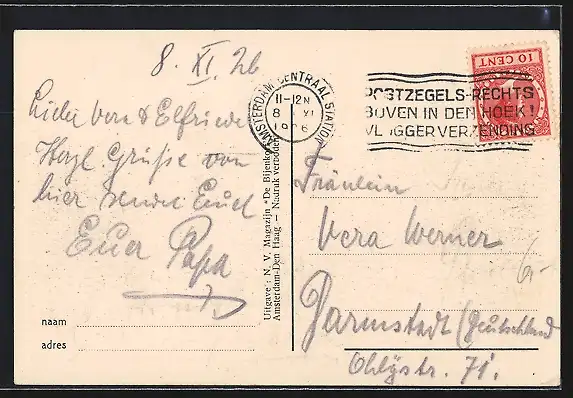 8. XI. 26
Liebe Vera & Elfriede
Herzl Grüße von
hier sendet Euch
Euer Papa
naam
adres
Uitgave: N. V. Magazijn „De Bijenkorf"
Amsterdam-Den Haag — Nadruk verboden
AMSTERDAM CENTRAAL STATION
11-12N
8 XI
1926
POSTZEGELS RECHTS
BOVEN IN DEN HOEK!
VLUGGER VERZENDING
10 CENT
Fräulein
Vera Werner
Darmstadt (Deutschland
Ohlystr. 71.
6,-